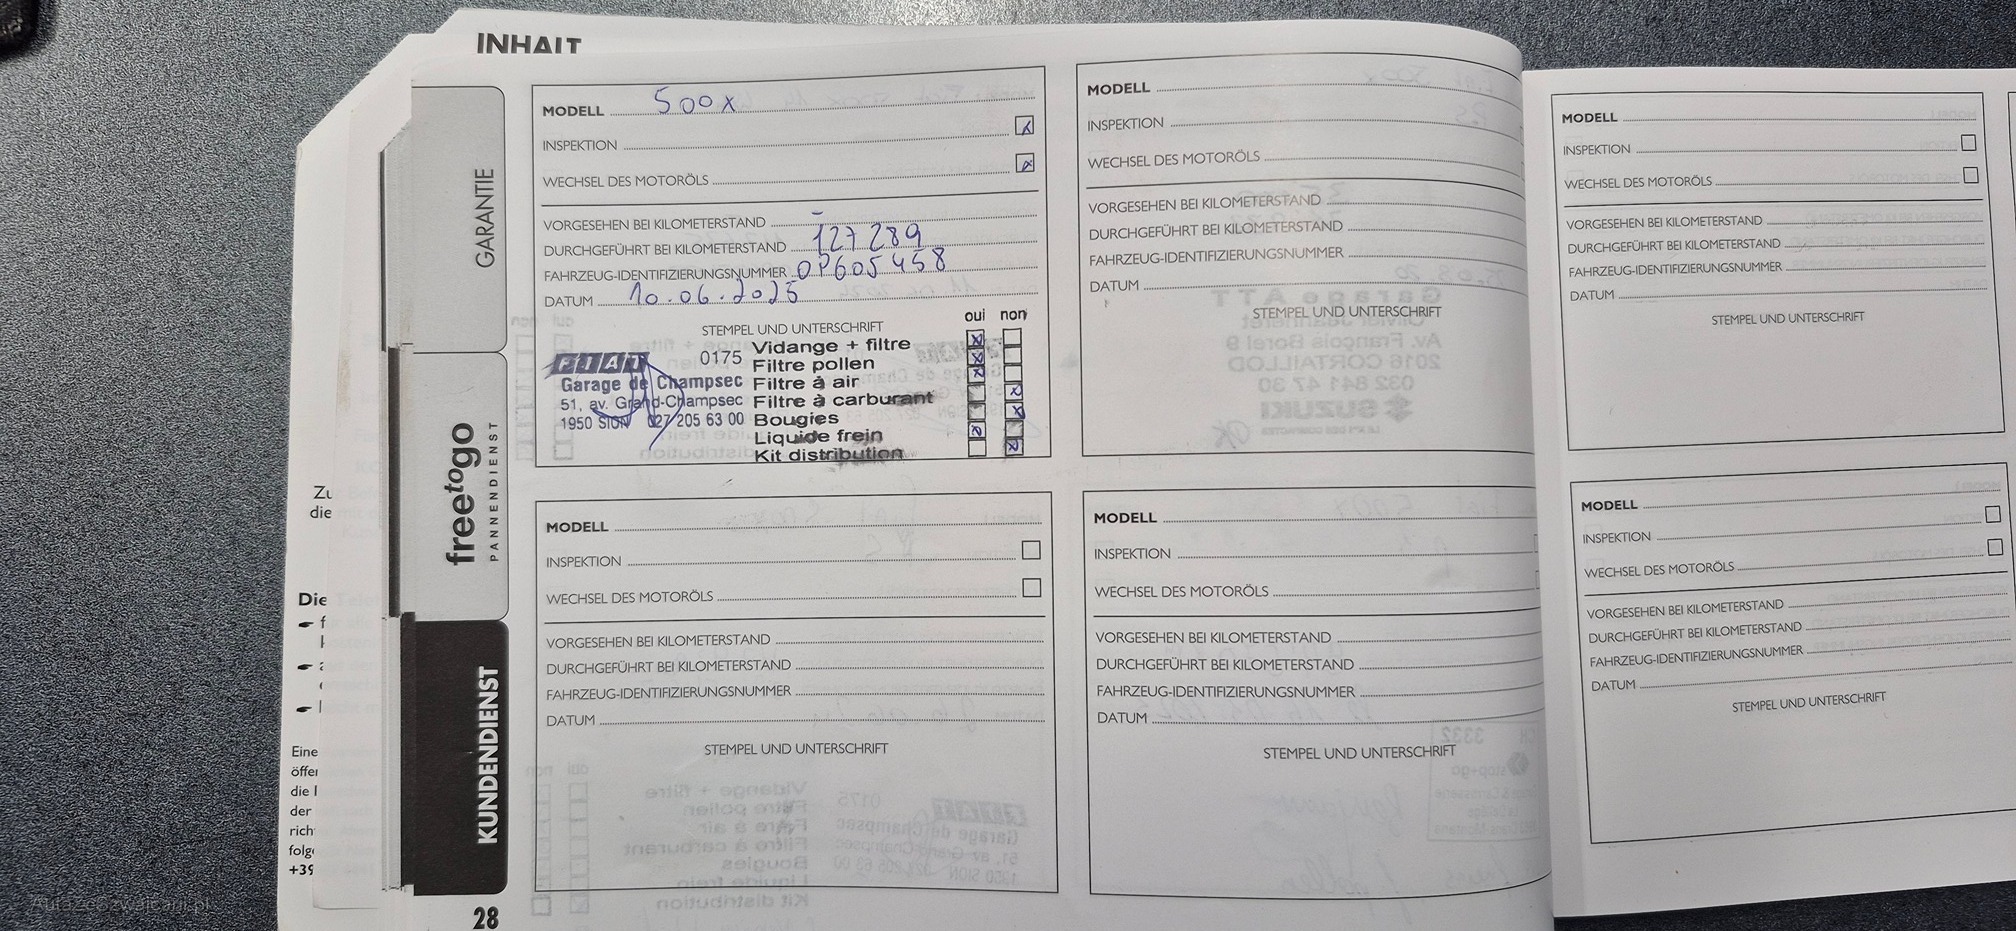 INHALT
GARANTIE
freetogo
PANNENDIENST
KUNDENDIENST
28
Zu
die
Die
Eine
öffe
die
der
rich
folge
+39
MODELL 500x
INSPEKTION
WECHSEL DES MOTORÖLS
VORGESEHEN BEI KILOMETERSTAND
DURCHGEFÜHRT BEI KILOMETERSTAND 127 289
FAHRZEUG-IDENTIFIZIERUNGSNUMMER 0P605458
DATUM 10.06.2025
STEMPEL UND UNTERSCHRIFT
oui non
FIAT 0175
Garage de Champsec
51, av. Grand-Champsec
1950 SION 027 205 63 00
Vidange + filtre
Filtre pollen
Filtre à air
Filtre à carburant
Bougies
Liquide frein
Kit distribution
MODELL
INSPEKTION
WECHSEL DES MOTORÖLS
VORGESEHEN BEI KILOMETERSTAND
DURCHGEFÜHRT BEI KILOMETERSTAND
FAHRZEUG-IDENTIFIZIERUNGSNUMMER
DATUM
STEMPEL UND UNTERSCHRIFT
MODELL
INSPEKTION
WECHSEL DES MOTORÖLS
VORGESEHEN BEI KILOMETERSTAND
DURCHGEFÜHRT BEI KILOMETERSTAND
FAHRZEUG-IDENTIFIZIERUNGSNUMMER
DATUM
STEMPEL UND UNTERSCHRIFT
MODELL
INSPEKTION
WECHSEL DES MOTORÖLS
VORGESEHEN BEI KILOMETERSTAND
DURCHGEFÜHRT BEI KILOMETERSTAND
FAHRZEUG-IDENTIFIZIERUNGSNUMMER
DATUM
STEMPEL UND UNTERSCHRIFT
MODELL
INSPEKTION
WECHSEL DES MOTORÖLS
VORGESEHEN BEI KILOMETERSTAND
DURCHGEFÜHRT BEI KILOMETERSTAND
FAHRZEUG-IDENTIFIZIERUNGSNUMMER
DATUM
STEMPEL UND UNTERSCHRIFT
MODELL
INSPEKTION
WECHSEL DES MOTORÖLS
VORGESEHEN BEI KILOMETERSTAND
DURCHGEFÜHRT BEI KILOMETERSTAND
FAHRZEUG-IDENTIFIZIERUNGSNUMMER
DATUM
STEMPEL UND UNTERSCHRIFT
AutazeSzwajcarii.pl